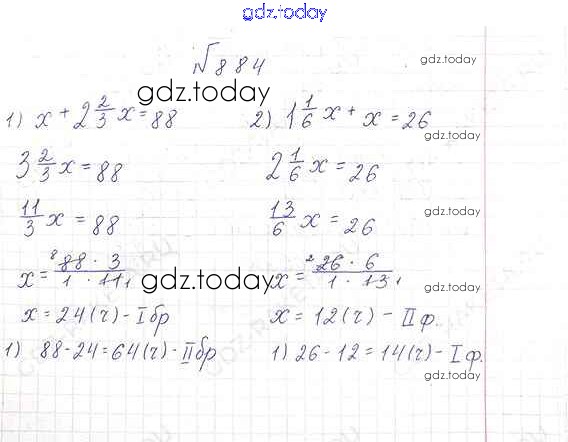 gdz.today
№884
gdz.today
gdz.today
1) x + 2 2/3 x = 88
2) 1 1/6 x + x = 26
gdz.today
3 2/3 x = 88
2 1/6 x = 26
gdz.today
11/3 x = 88
13/6 x = 26
gdz.today
x = 88 · 3 / 1 · 11
8
1
gdz.today
x = 26 · 6 / 1 · 13
2
1
gdz.today
x = 24 (г) - I бр
x = 12 (г) - II ф.
gdz.today
1) 88 - 24 = 64 (г) - II бр
1) 26 - 12 = 14 (г) - I ф.
gdz.today